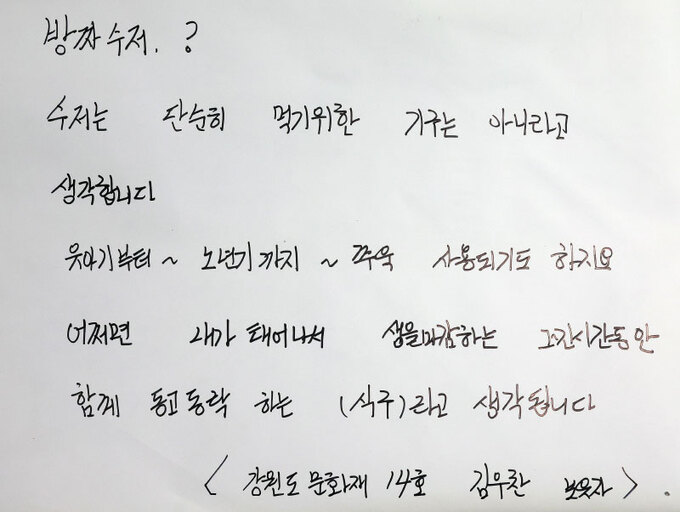 방짜수저. ?
수저는 단순히 먹기위한 기구는 아니라고
생각합니다
유아기부터 ~ 노년기까지 ~ 쭈욱 사용되기도 하지요
어쩌면 내가 태어나서 생을마감하는 그긴시간동안
함께 동고동락 하는 (식구)라고 생각됩니다
< 강원도 문화재 14호 김우찬 보유자 > .